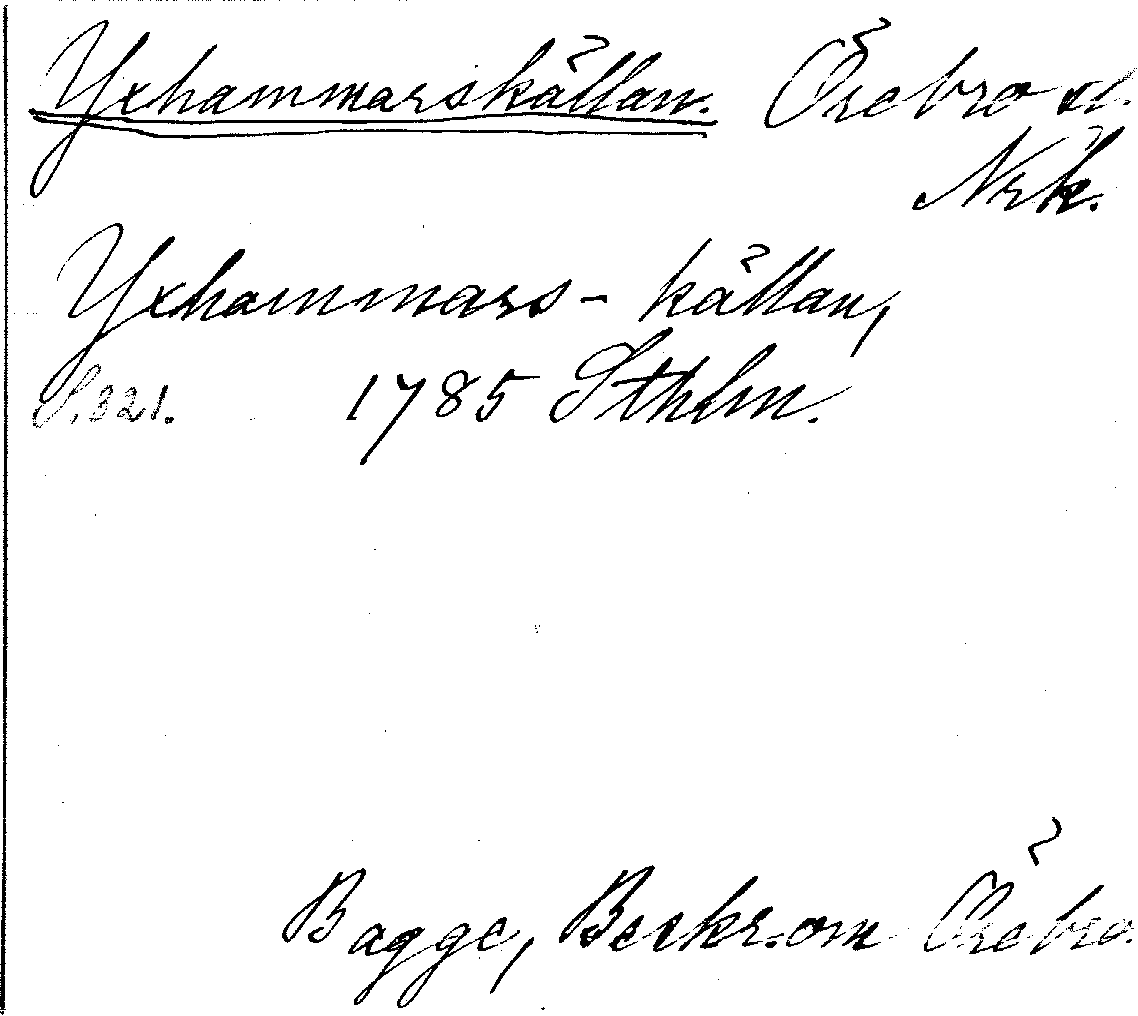 Yxhammarskällan. Örebro st.
Nrk.
Yxhammars-källan,
S. 321. 1785 Sthlm.
Bagge, Beskr. om Örebro.